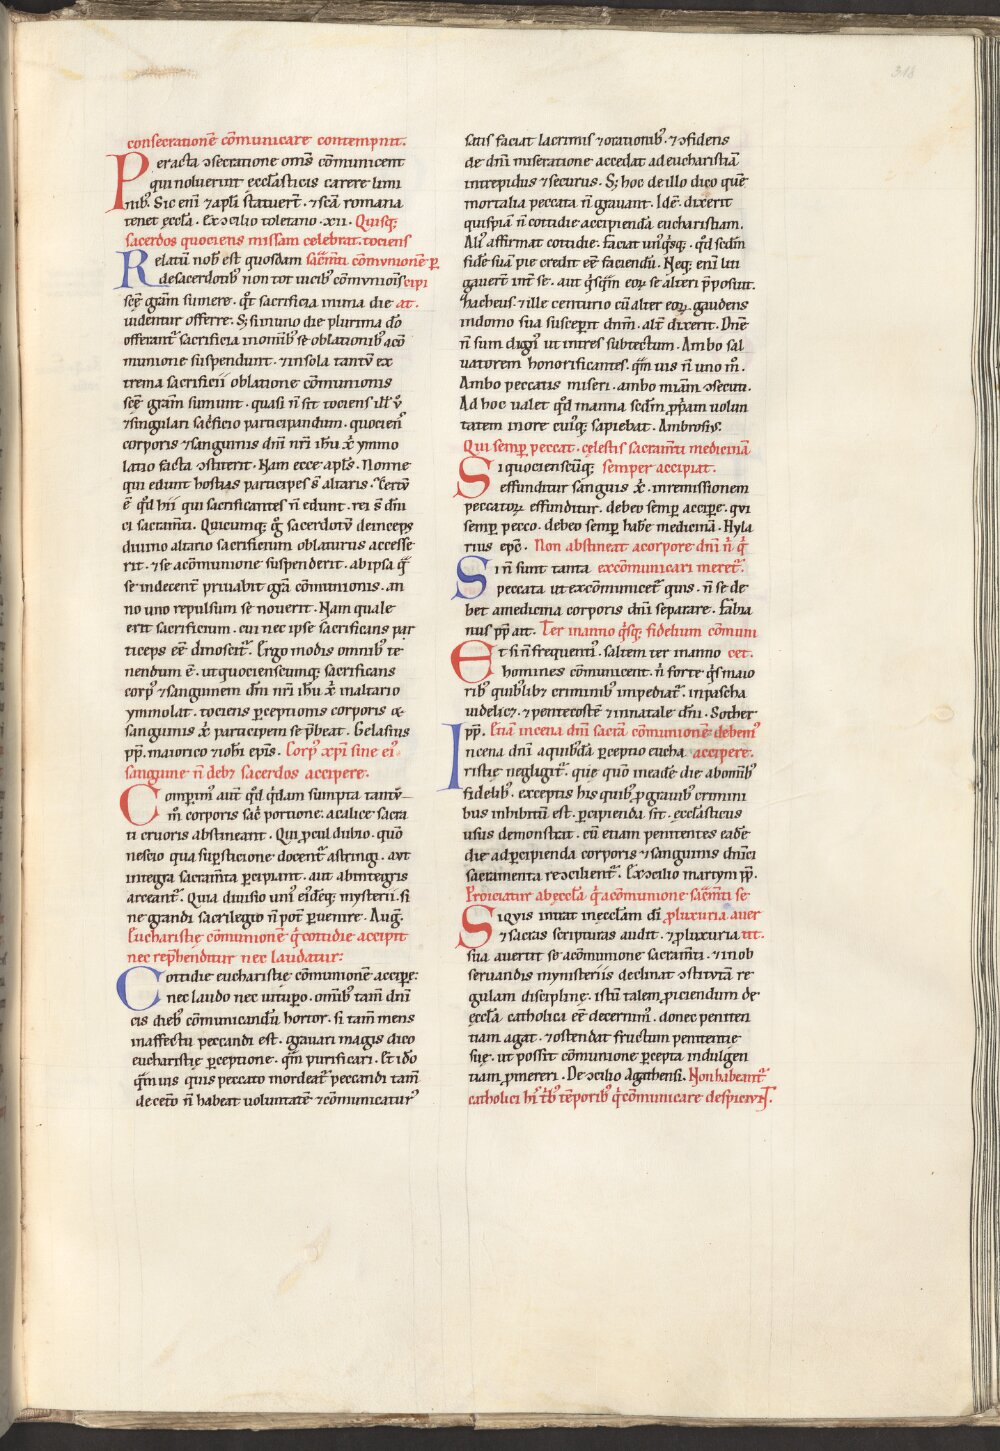 318
consecrationē cōmunicare contempnit.
Peracta ↄsecratione om̄s cōmunicent
qui noluerint eccl̄asticis carere limi
nibꝰ. Sic enī ⁊ apl̄i statuert̄. ⁊ scā romana
tenet ęccl̄a. Ex ↄcilio toletano .xii. Quisqꝫ
sacerdos quociens missam celebrat. tociens
Relatū nobꝰ est quosdam sac̄mti cōmunionē ꝑ
de sacerdotibꝰ non tot uicibꝰ cōmunioīs cipi
sc̄ę grām sumere. qͦt sacrificia inuna die at.
uidentur offerre. Sꝫ si in uno die plurima dō
offerant᷑ sacrificia in om̄ibꝰ se oblationibꝰ acō
munione suspendunt. ⁊ in sola tantū ex
trema sacrificii oblatione cōmunionis
sc̄ę grām sumunt. quasi n̄ sit tociens ill̄ ū
⁊ singulari sac̄ficio participandum. quocien̄
corporis ⁊ sanguinis dn̄i nr̄i ih̄u xp̄ ymmo
latio facta ↄstiterit. Nam ecce apl̄s. Nonne
qui edunt hostias participes s̄ altaris. Certū
ē qd̄ hii qui sacrificantes n̄ edunt. rei s̄ dn̄i
ci sacram̄ti. Quicumqꝫ g̊ sacerdotū deinceps
diuino altario sacrificium oblaturus accesse
rit. ⁊ se acōmunione suspenderit. ab ipsa qͣ
se indecent̄ priuabit gr̄a cōmunionis. an
no uno repulsum se nouerit. Nam quale
erit sacrificium. cui nec ipse sacrificans par
ticeps eē dinoscit᷑. Ergo modis omnibꝰ te
nendum ē. ut quociensc̄umqꝫ sacrificans
corpꝰ ⁊ sanguinem dn̄i nr̄i ih̄u xp̄ in altario
ymmolat. tociens ꝑceptionis corporis ⁊
sanguinis xp̄ participem se p̄beat. Gelasius
pp̄. maiorico ⁊ ioh̄i ep̄is. Corpꝰ xp̄i sine eiꝰ
sanguine n̄ debꝫ sacerdos accipere.
Comperimꝰ aut̄ qd̄ qͥdam sumpta tantū
m̄ corporis sac̄ portione. acalice sacra
ti cruoris abstineant. Qui ꝓcul dubio. quō
nescio qua suꝑsticione docent᷑ astringi. aut
integra sacram̄ta ꝑcipiant. aut abintegris
arceant᷑. Quia diuisio unꝰ eiꝰdēqꝫ mysterii. si
ne grandi sacrilegio n̄ pot̄ ꝓuenire. Aug̊.
Eucharistię cōmunionē qͥ cottidie accipit
nec rep̄henditur nec laudatur:
Cottidie eucharistię cōmunionē accipe:
nec laudo nec uitupo. om̄ibꝰ tam̄ dn̄i
cis diebꝰ cōmunicandū hortor. si tam̄ mens
in affectu peccandi est. grauari magis dico
eucharistię ꝑceptione. qͣm purificari. Et iō
qͣm uis quis peccato mordeat᷑ peccandi tam̄
de cetō n̄ habeat uoluntatē ⁊ cōmunicaturꝰ
satis faciat lacrimis ⁊ orationibꝰ. ⁊ ↄfidens
de dn̄i miseratione accedat ad eucharistiā
intrepidus ⁊ securus. Sꝫ hoc de illo dico quē
mortalia peccata n̄ grauant. Idē. dixerit
quispiā n̄ cottidie accipienda eucharistiam.
Aliꝰ affirmat cottidie. Faciat unꝰqͥsqꝫ. qd̄ scdm̄
fidē suā pie credit eē faciendū. Neqꝫ enī liti
gauert̄ int̄ se. aut qͥsqͣm eoꝝ se alteri p̄posuit.
Zacheus. ⁊ ille centurio cū alter eoꝝ. gaudens
in domo sua suscepit dn̄m. alt̄ dixerit. Dn̄e
n̄ sum dignꝰ ut intres sub tectum. Ambo sal
uatorem honorificantes. qͣm uis n̄ uno mͦ.
Ambo peccatis miseri. ambo miām ↄsecuti.
Ad hoc ualet qd̄ manna scdm̄ ꝓpͥam uolun
tatem in ore cuiꝰqꝫ sapiebat. Ambrosiꝰ.
Qui semꝑ peccat. cęlestis sacram̄ti medicinā
Si quociensc̄ūqꝫ semper accipiat.
effunditur sanguis xp̄. in remissionem
peccatoꝝ effunditur. debeo semꝑ accipe. qui
semꝑ pecco. debeo semꝑ habe medicinā. Hyla
rius epc̄. Non abstineat acorpore dn̄i n̄ qͥ
Si n̄ sunt tanta excōmunicari meret᷑.
peccata ut excōmunicet᷑ quis. n̄ se de
bet amedicina corporis dn̄i separare. Fabia
nus pp̄ ait. Ter in anno qͥsqꝫ fidelium cōmuni
Et si n̄ frequentiꝰ. saltem ter in anno cet.
homines cōmunicent. n̄ forte qͥs maio
ribꝰ quibꝰlibꝫ criminibꝰ impediat᷑. in pascha
uidelicꝫ. ⁊ pentecostē ⁊ in natale dn̄i. Sother
pp̄. Etiā in cena dn̄i sacrā cōmunionē debemꝰ
In cena dn̄i aquibꝰdā ꝑceptio eucha accipere.
ristię negligit᷑. quę quō in eadē die abom̄ibꝰ
fidelibꝰ. exceptis his quibꝰ ꝓ grauibꝰ crimini
bus inhibitū est. ꝑcipienda sit. ęccl̄asticus
usus demonstrat. cū etiam penitentes eadē
die ad ꝑcipienda corporis ⁊ sanguinis dn̄ici
sacramenta recↄcilient᷑. Ex ↄcilio martym pp̄.
Proiciatur ab ęccl̄a qͥ acōmunione sac̄m̄ti se
Si quis intrat in ęccl̄am dī ꝓ luxuria auer
⁊ sacras scripturas audit. ⁊ ꝓ luxuria tit.
sua auertit se acōmunione sacram̄ti. ⁊ in ob
seruandis mynisteriis declinat ↄstitutā re
gulam discipline. istū talem ꝓiciendum de
ęccl̄a catholica eē decernimꝰ. donec peniten
tiam agat. ⁊ ostendat fructum penitentię
suę. ut possit cōmunionē ꝑcepta indulgen
tiam ꝓmereri. De ↄcilio Agathensi. Non habeant᷑
catholici hīi tͥbꝰ tēporibꝰ qͥ cōmunicare despiciūt.